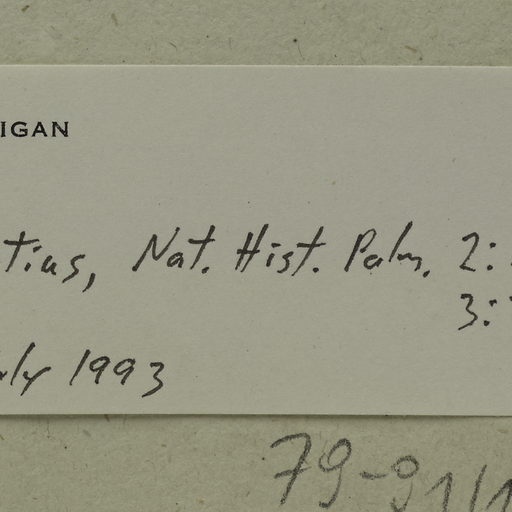 IGAN
tius, Nat. Hist. Palm. 2:
3:
uly 1993
79-91/1